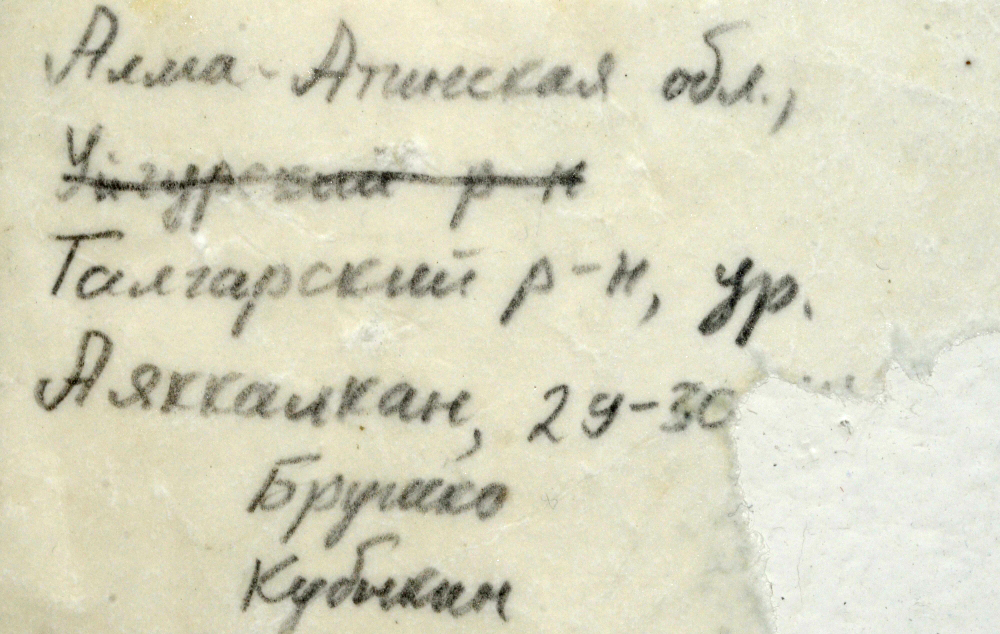 Алма-Атинская обл.,
Уйгурский р-н
Талгарский р-н, ур.
Аяккалкан, 29-30
Брушко
Кубыкин